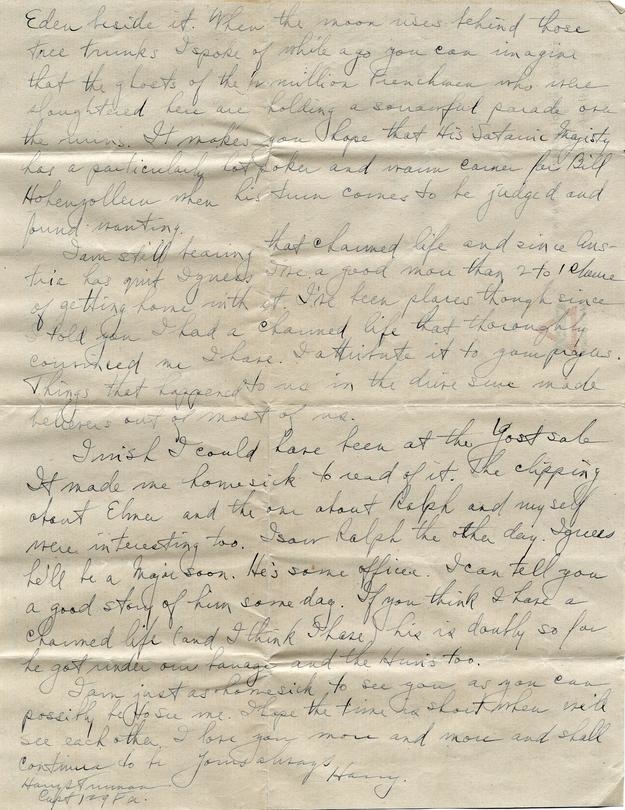 Eden beside it. When the moon rises behind those
tree trunks I spoke of while ago you can imagine
that the ghosts of the ½ million Frenchmen who were
slaughtered here are holding a sorrowful parade over
the ruins. It makes you hope that His Satanic Majesty
has a particularly hot poker and warm corner for Bill
Hohenzollern when his turn comes to be judged and
found wanting.
I am still bearing that charmed life and since Aus-
tria has quit I guess I've a good more than 2 to 1 chance
of getting home with it. I've been places though since
I told you I had a charmed life that thoroughly
convinced me I have. I attribute it to your prayers.
Things that happened to us in the drive sure made
believers out of most of us.
I wish I could have been at the Yost sale
It made me homesick to read of it. The clipping
about Elmer and the one about Ralph and myself
were interesting too. I saw Ralph the other day. I guess
he'll be a Major soon. He's some officer. I can tell you
a good story of him some day. If you think I have a
charmed life (and I think I have) his is doubly so for
he got under our barrage and the Hun's too.
I am just as homesick to see you as you can
possibly be to see me. I hope the time is short when we'll
see each other. I love you more and more and shall
continue to be Yours always
Harry.
Harry S Truman
Capt 129 F.A.